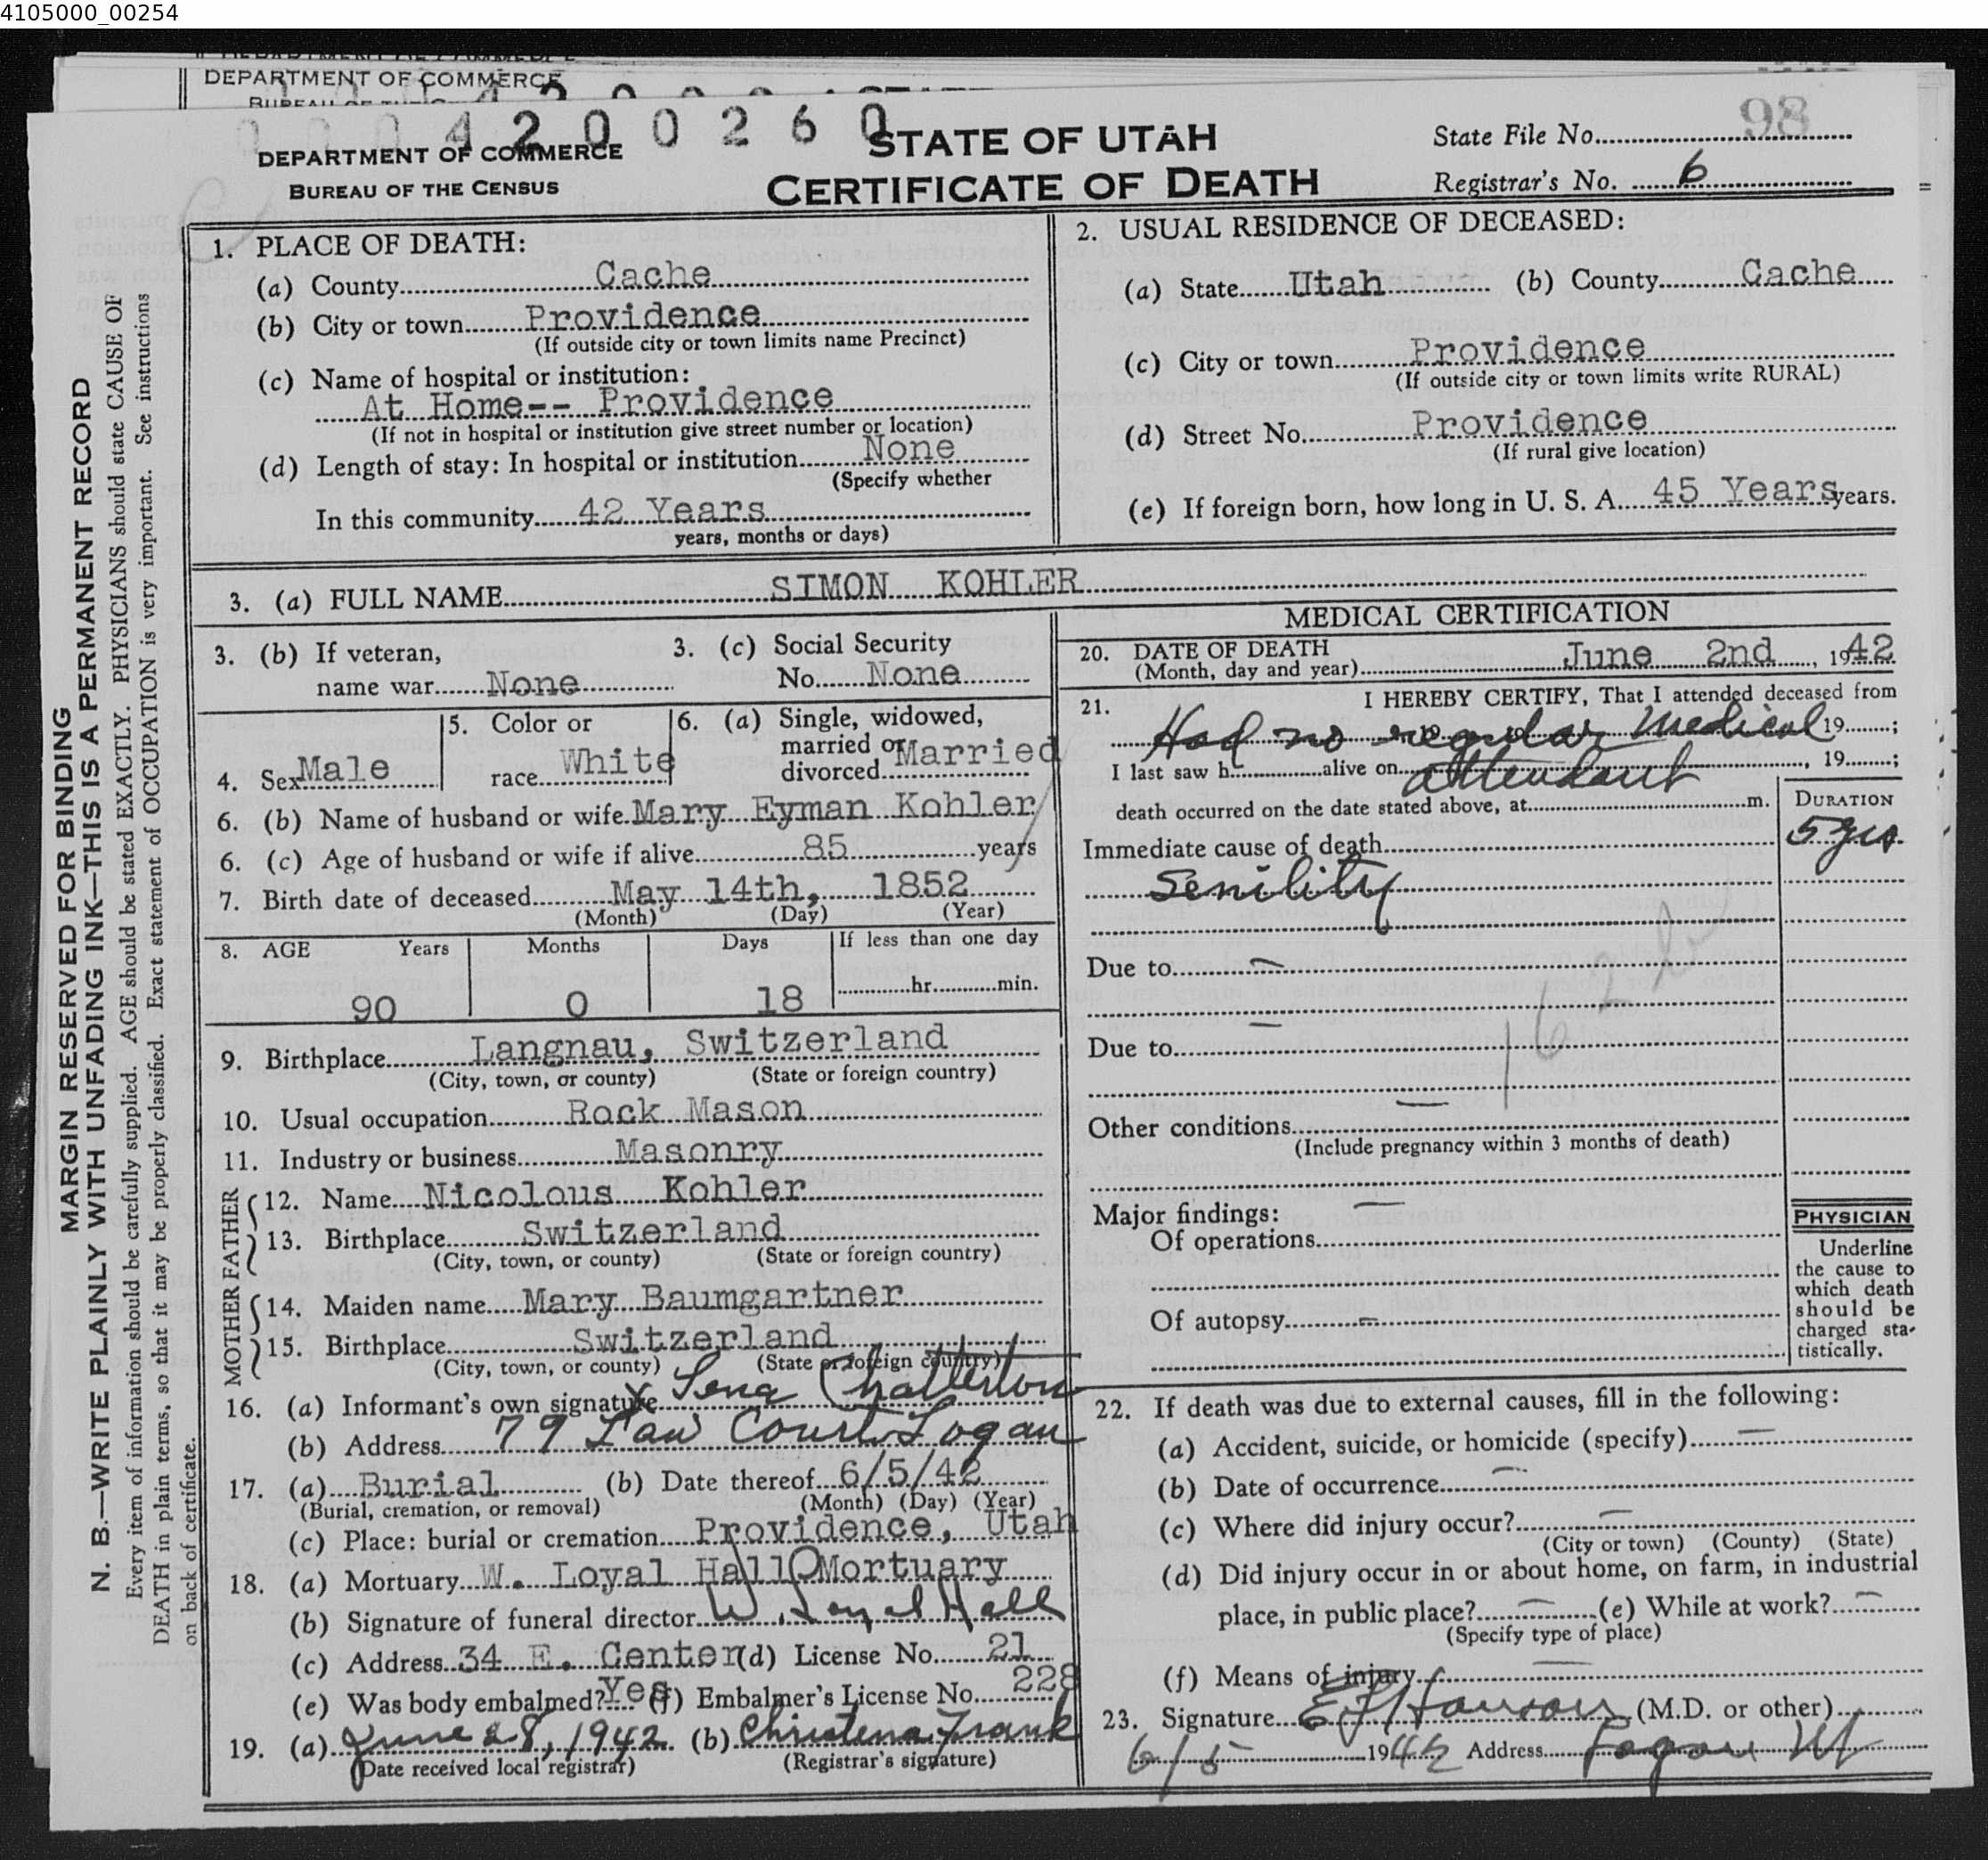 4105000_00254
DEPARTMENT OF COMMERCE
0 0 0 4 2 0 0 2 6 0
DEPARTMENT OF COMMERCE
BUREAU OF THE CENSUS
STATE OF UTAH
CERTIFICATE OF DEATH
State File No. 98
Registrar's No. 6
MARGIN RESERVED FOR BINDING
N. B.—WRITE PLAINLY WITH UNFADING INK—THIS IS A PERMANENT RECORD
Every item of information should be carefully supplied. AGE should be stated EXACTLY. PHYSICIANS should state CAUSE OF
DEATH in plain terms, so that it may be properly classified. Exact statement of OCCUPATION is very important. See instructions
on back of certificate.
1. PLACE OF DEATH:
(a) County Cache
(b) City or town Providence
(If outside city or town limits name Precinct)
(c) Name of hospital or institution:
At Home-- Providence
(If not in hospital or institution give street number or location)
(d) Length of stay: In hospital or institution None
(Specify whether
In this community 42 Years
years, months or days)
2. USUAL RESIDENCE OF DECEASED:
(a) State Utah (b) County Cache
(c) City or town Providence
(If outside city or town limits write RURAL)
(d) Street No. Providence
(If rural give location)
(e) If foreign born, how long in U. S. A. 45 Years years.
3. (a) FULL NAME SIMON KOHLER
3. (b) If veteran,
name war None
3. (c) Social Security
No. None
4. Sex Male
5. Color or
race White
6. (a) Single, widowed,
married or
divorced Married
6. (b) Name of husband or wife Mary Eyman Kohler
6. (c) Age of husband or wife if alive 85 years
7. Birth date of deceased May 14th, 1852
(Month) (Day) (Year)
8. AGE Years Months Days If less than one day
90 0 18 hr. min.
9. Birthplace Langnau, Switzerland
(City, town, or county) (State or foreign country)
10. Usual occupation Rock Mason
11. Industry or business Masonry
FATHER
12. Name Nicolous Kohler
13. Birthplace Switzerland
(City, town, or county) (State or foreign country)
MOTHER
14. Maiden name Mary Baumgartner
15. Birthplace Switzerland
(City, town, or county) (State or foreign country)
16. (a) Informant's own signature x Lena Chatterton
(b) Address 79 Law Court Logan
17. (a) Burial (b) Date thereof 6/5/42
(Burial, cremation, or removal) (Month) (Day) (Year)
(c) Place: burial or cremation Providence, Utah
18. (a) Mortuary W. Loyal Hall Mortuary
(b) Signature of funeral director W. Loyal Hall
(c) Address 34 E. Center (d) License No. 21
(e) Was body embalmed? Yes (f) Embalmer's License No. 228
19. (a) June 28, 1942 (b) Christena Frank
(Date received local registrar) (Registrar's signature)
MEDICAL CERTIFICATION
20. DATE OF DEATH
(Month, day and year) June 2nd, 1942
21. I HEREBY CERTIFY, That I attended deceased from
Had no regular Medical 19 ;
I last saw h alive on attendant , 19 ;
death occurred on the date stated above, at m.
DURATION
Immediate cause of death 5 yrs.
Senility
162b
Due to —
Due to —
Other conditions —
(Include pregnancy within 3 months of death)
Major findings: —
Of operations
Of autopsy —
PHYSICIAN
Underline
the cause to
which death
should be
charged sta-
tistically.
22. If death was due to external causes, fill in the following:
(a) Accident, suicide, or homicide (specify) —
(b) Date of occurrence —
(c) Where did injury occur? —
(City or town) (County) (State)
(d) Did injury occur in or about home, on farm, in industrial
place, in public place? — (e) While at work? —
(Specify type of place)
(f) Means of injury —
23. Signature (M.D. or other)
6/5 1942 Address Logan Ut